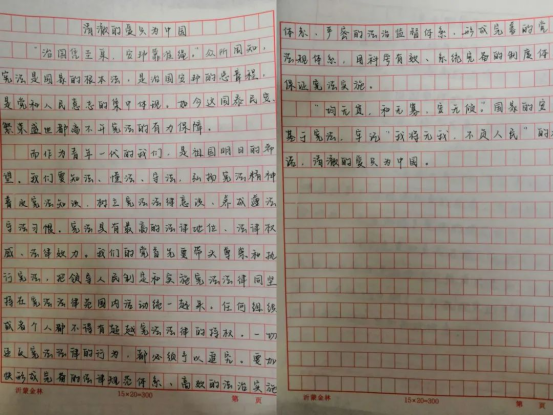 清澈的爱只为中国
"治国凭圭臬，安邦靠准绳。"众所周知，
宪法是国家的根本法，是治国安邦的总章程，
是党和人民意志的集中体现，如今这国泰民安、
繁荣盛世都离不开宪法的有力保障。
而作为青年一代的我们，是祖国明日的希
望。我们要知法、懂法、守法，弘扬宪法精神
普及宪法知识，树立宪法法律意识，养成遵法
守法习惯。宪法具有最高的法律地位、法律权
威、法律效力。我们的党首先要带头尊崇和执
行宪法，把领导人民制定和实施宪法法律同坚
持在宪法法律范围内活动统一起来，任何组织
或者个人都不得有超越宪法法律的特权。一切
违反宪法法律的行为，都必须予以追究。要加
快形成完备的法律规范体系、高效的法治实施
沂蒙金林
15×20=300
第 页
体系、严密的法治监督体系，形成完善的党
法规体系，用科学有效、系统完备的制度体
保证宪法实施。
"均无贫，和无寡，安无倾。"国家的安
基于宪法，辛流"我将无我，不负人民"的
语，清澈的爱只为中国。
沂蒙金林
15×20=300
第 页